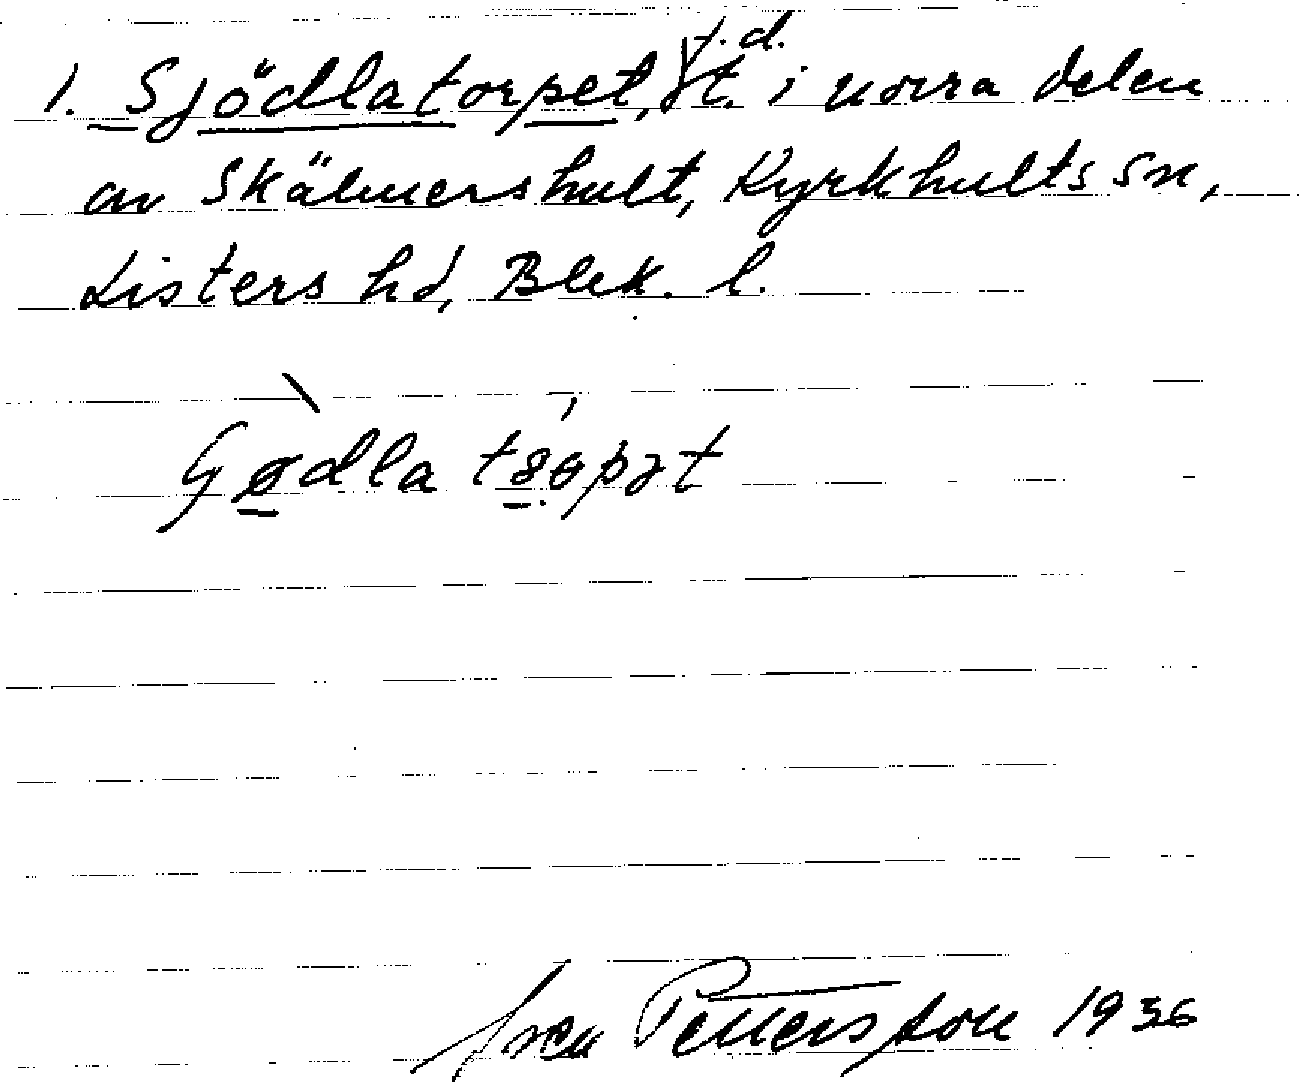 1. Sjödlatorpet, f.d. t. i norra delen
av Skälmershult, Kyrkhults sn,
Listers hd, Blek. l.
Sven Pettersson 1936